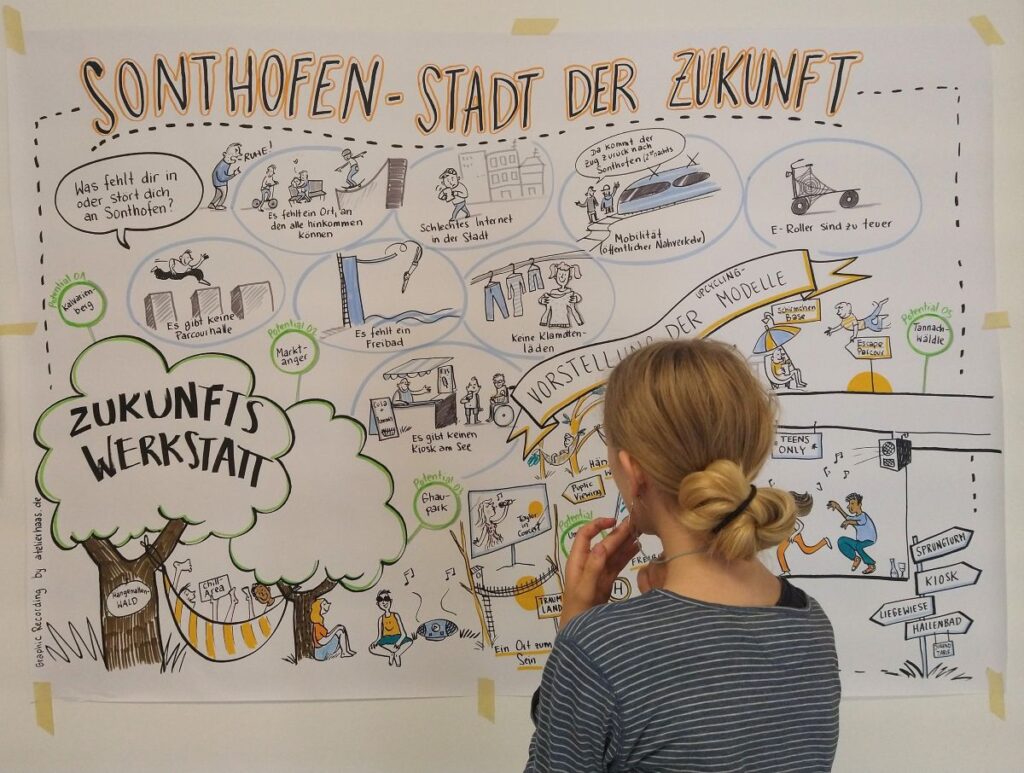 SONTHOFEN - STADT DER ZUKUNFT
Was fehlt dir in
oder stört dich
an Sonthofen?
RUHE!
Es fehlt ein Ort, an
den alle hinkommen
können
Schlechtes Internet
in der Stadt
Da kommt der
Zug zurück nach
Sonthofen
Mobilität
(öffentlicher Nahverkehr)
E-Roller sind zu teuer
Es gibt keine
Parcourhalle
Es fehlt ein
Freibad
Keine Klamotten-
läden
Es gibt keinen
Kiosk am See
VORSTELLUNG DER
UPCYCLING-
MODELLE
Potential 01
Kalvarien-
berg
Markt-
anger
Potential 03
Ghau-
park
Potential 05
Tannach-
wäldle
ZUKUNFTS
WERKSTATT
Hängematten
WALD
Chill-
Area
Public
Viewing
in Concert
TRAUM
LAND
Ein Ort zum
Sein
H
Schirmchen
Base
Escape
Parcour
TEENS
ONLY
SPRUNGTURM
KIOSK
LIEGEWIESE
HALLENBAD
Graphic Recording by atelierhaas.de